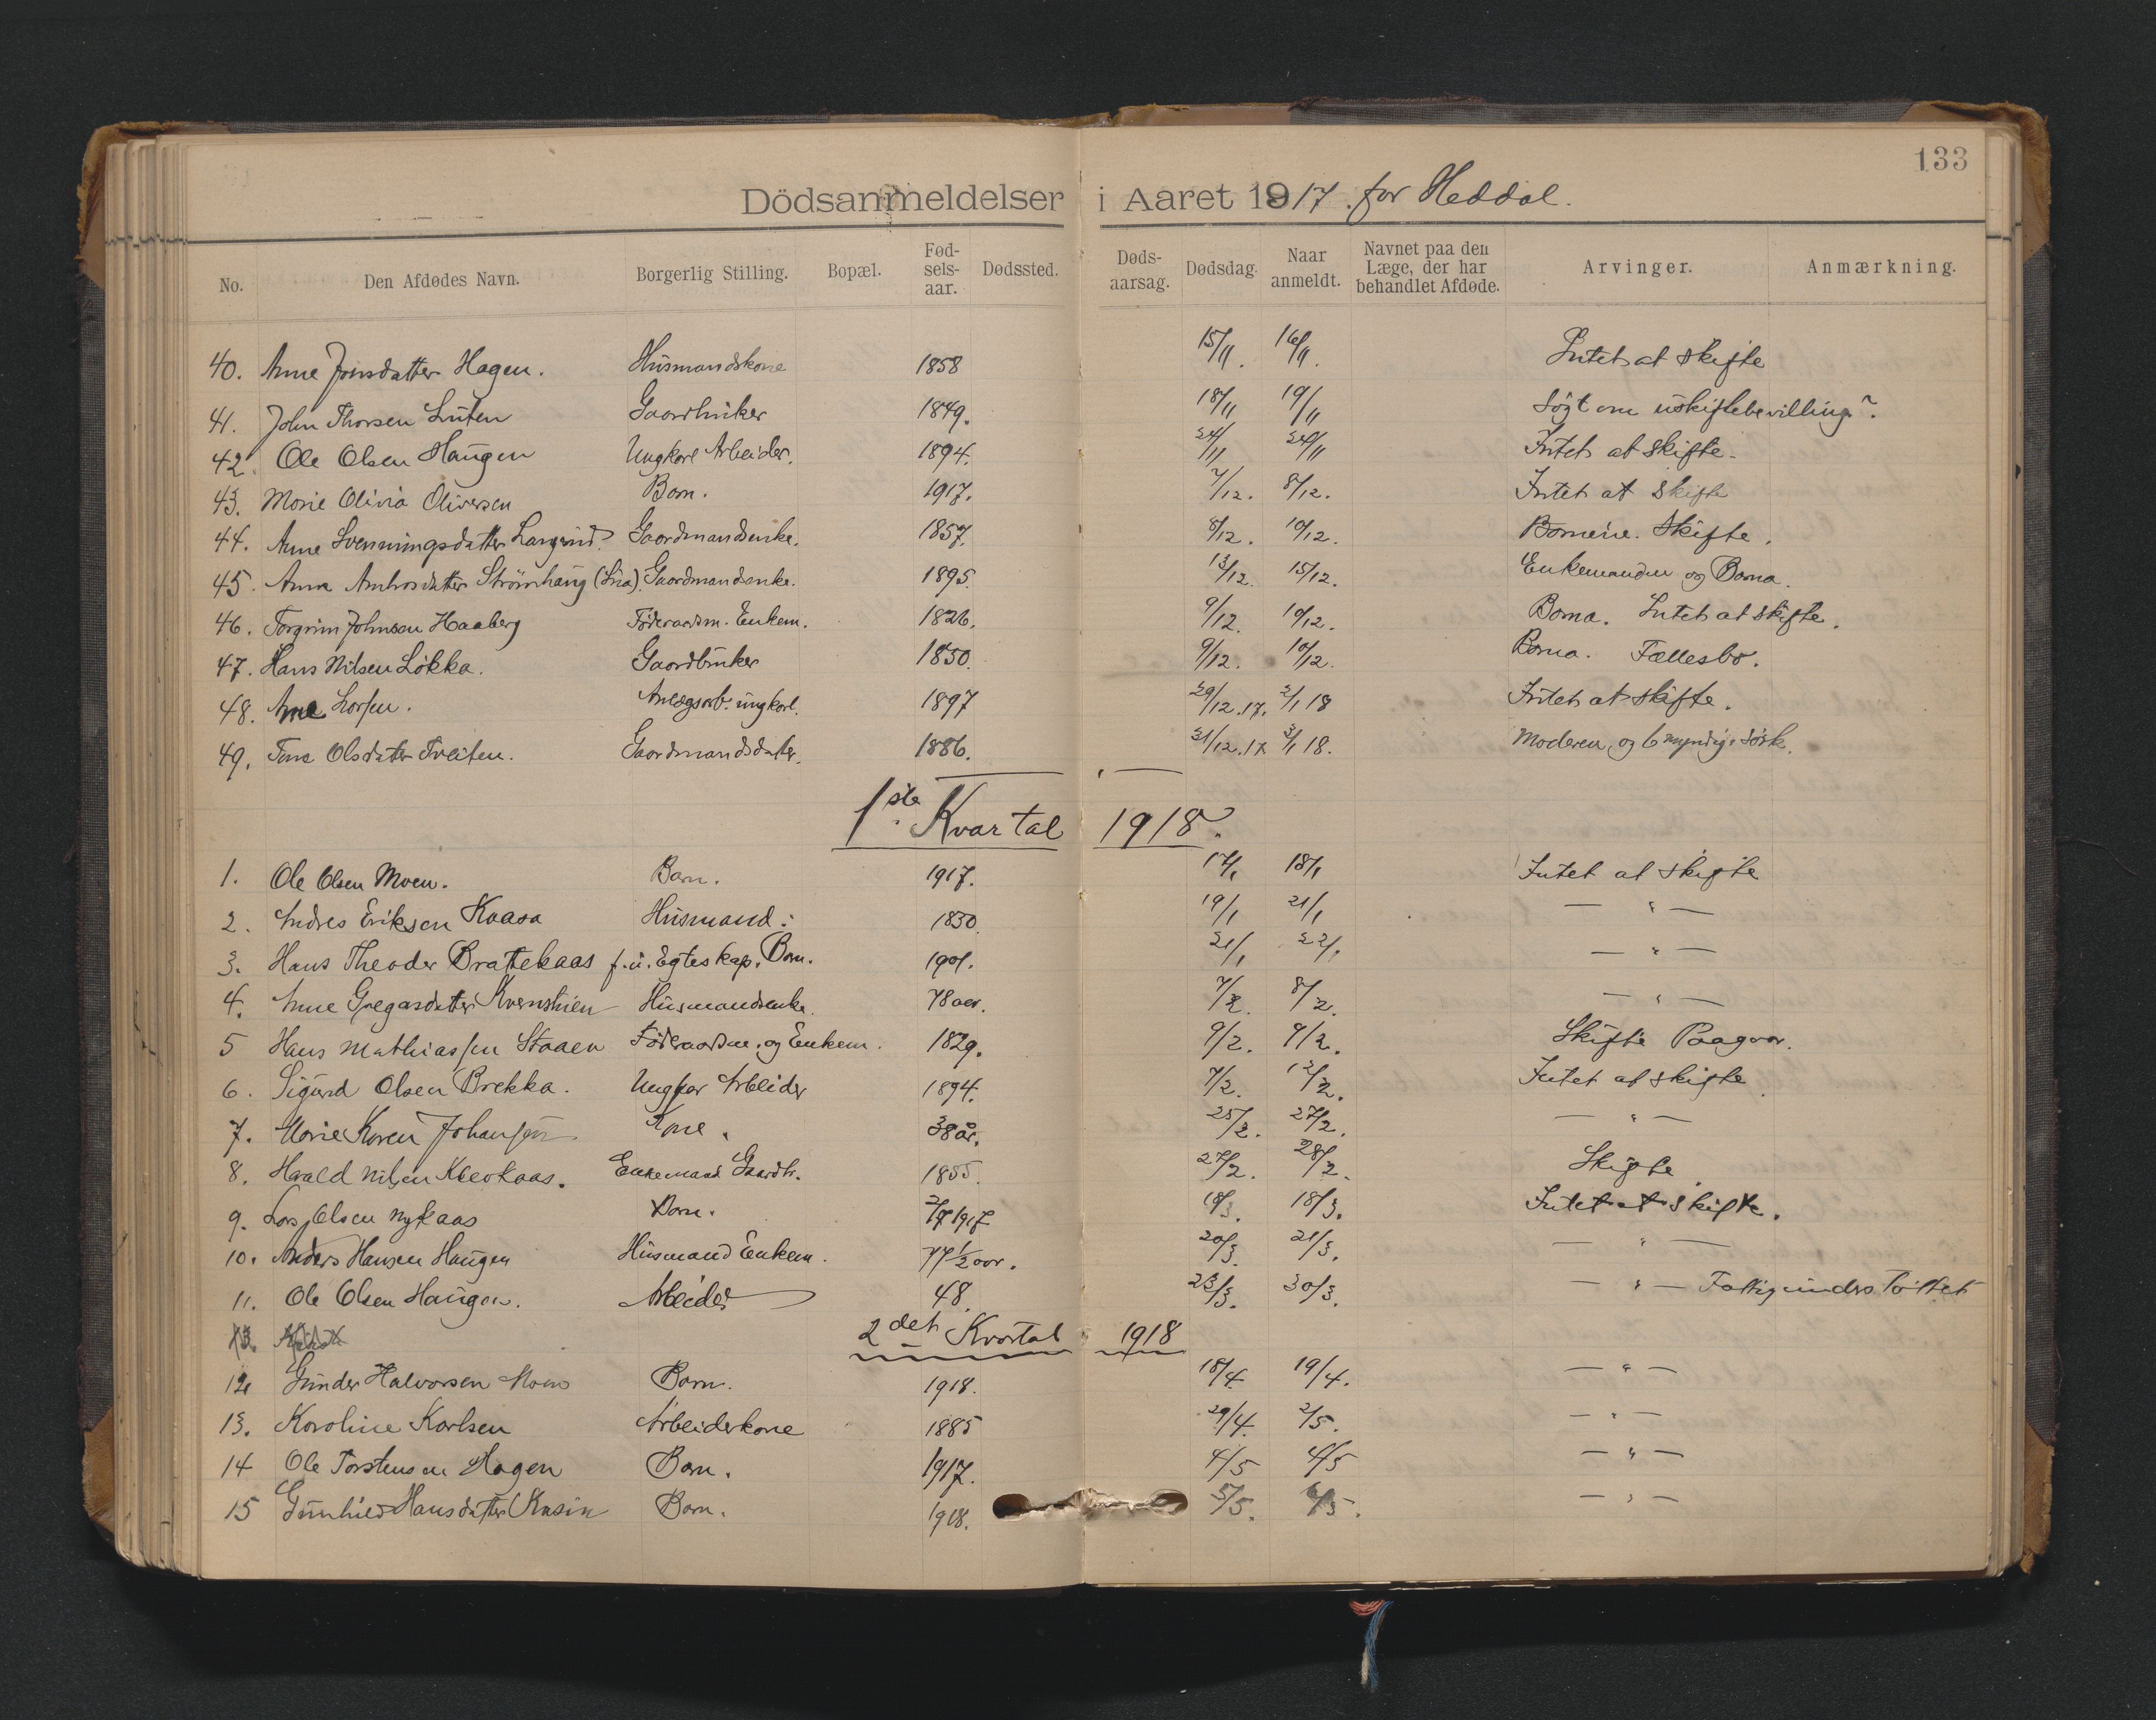 133
Dödsanmeldelser i Aaret 1917. for Heddal.
No. Den Afdødes Navn. Borgerlig Stilling. Bopæl. Fød-sels-aar. Dødssted. Døds-aarsag. Dødsdag. Naar anmeldt. Navnet paa den Læge, der har behandlet Afdøde. Arvinger. Anmærkning.
40. Anne Jonsdatter Hagen. Husmandskone 1858 15/11. 16/11. Intet at skifte
41. John Thorsen Gaardbruker 1849. 18/11 19/11 Søgt om uskiftebevilling.
42. Ole Olsen Haugen Ungkarl Arbeider. 1894. 24/11 24/11 Intet at skifte.
43. Marie Olivia Oliversen Barn. 1917. 7/12. 8/12. Intet at skifte
44. Anne Svenningsdatter Gaardmandsenke. 1857. 8/12. 10/12. Børnene. Skifte.
45. Anna Strømhaug Gaardmandsenke. 1895. 13/12. 15/12. Enkemanden og Børna.
46. Torgrim Johnsen Haaberg Føderaadsm. Enkem. 1826. 9/12. 10/12. Børna. Intet at skifte.
47. Hans Nilsen Løkka. Gaardbruker 1850. 9/12. 10/12. Børna. Fællesbo.
48. Larsen. Anlægsarb. ungkarl. 1897 29/12.17. 2/1 18 Intet at skifte.
49. Tone Olsdatter Tveiten. Gaardmandsdatter. 1886. 31/12.17. 3/1 18. Moderen og 6 myndige søsk.
1ste Kvartal 1918.
1. Ole Olsen Moen. Barn. 1917. 17/1 18/1 Intet at skifte
2. Andres Eriksen Kaasa Husmand. 1830. 19/1 21/1 — " —
3. Hans Theodor Brattekaas f. u. Egteskap. Barn. 1901. 21/1 22/1 — " —
4. Anne Gregarsdatter Husmandsenke. 78 aar. 7/2. 8/2. — " —
5 Hans Mathiassen Staaen Føderaadsm. og Enkem. 1829. 9/2. 9/2. Skifte Paagaar.
6. Sigurd Olsen Brekka. Ungkar Arbeider 1894. 7/2. 12/2. Intet at skifte.
7. Marie Karen Johansen Kone. 38 år. 25/2. 27/2. — " —
8. Harald Nilsen Enkemand Gaardbr. 1855. 27/2. 28/2. Skifte
9. Lars Olsen Nykaas Barn. 2/7 1917 18/3. 18/3. Intet at skifte.
10. Anders Hansen Haugen Husmand Enkem. 77 1/2 aar. 20/3. 21/3. — " —
11. Ole Olsen Haugen. Arbeider 48. 23/3. 30/3. — " — Fattigunderstøttet
13.
2det Kvartal 1918
12. Gunder Halvorsen Moen Barn. 1918. 18/4. 19/4. — " —
13. Karoline Karlsen Arbeiderkone 1885 29/4. 2/5. — " —
14 Ole Torstensen Hagen Barn. 1917. 4/5 4/5 — " —
15 Gunhild Hansdatter Kasin Barn. 1918. 5/5. 6/5. — " —